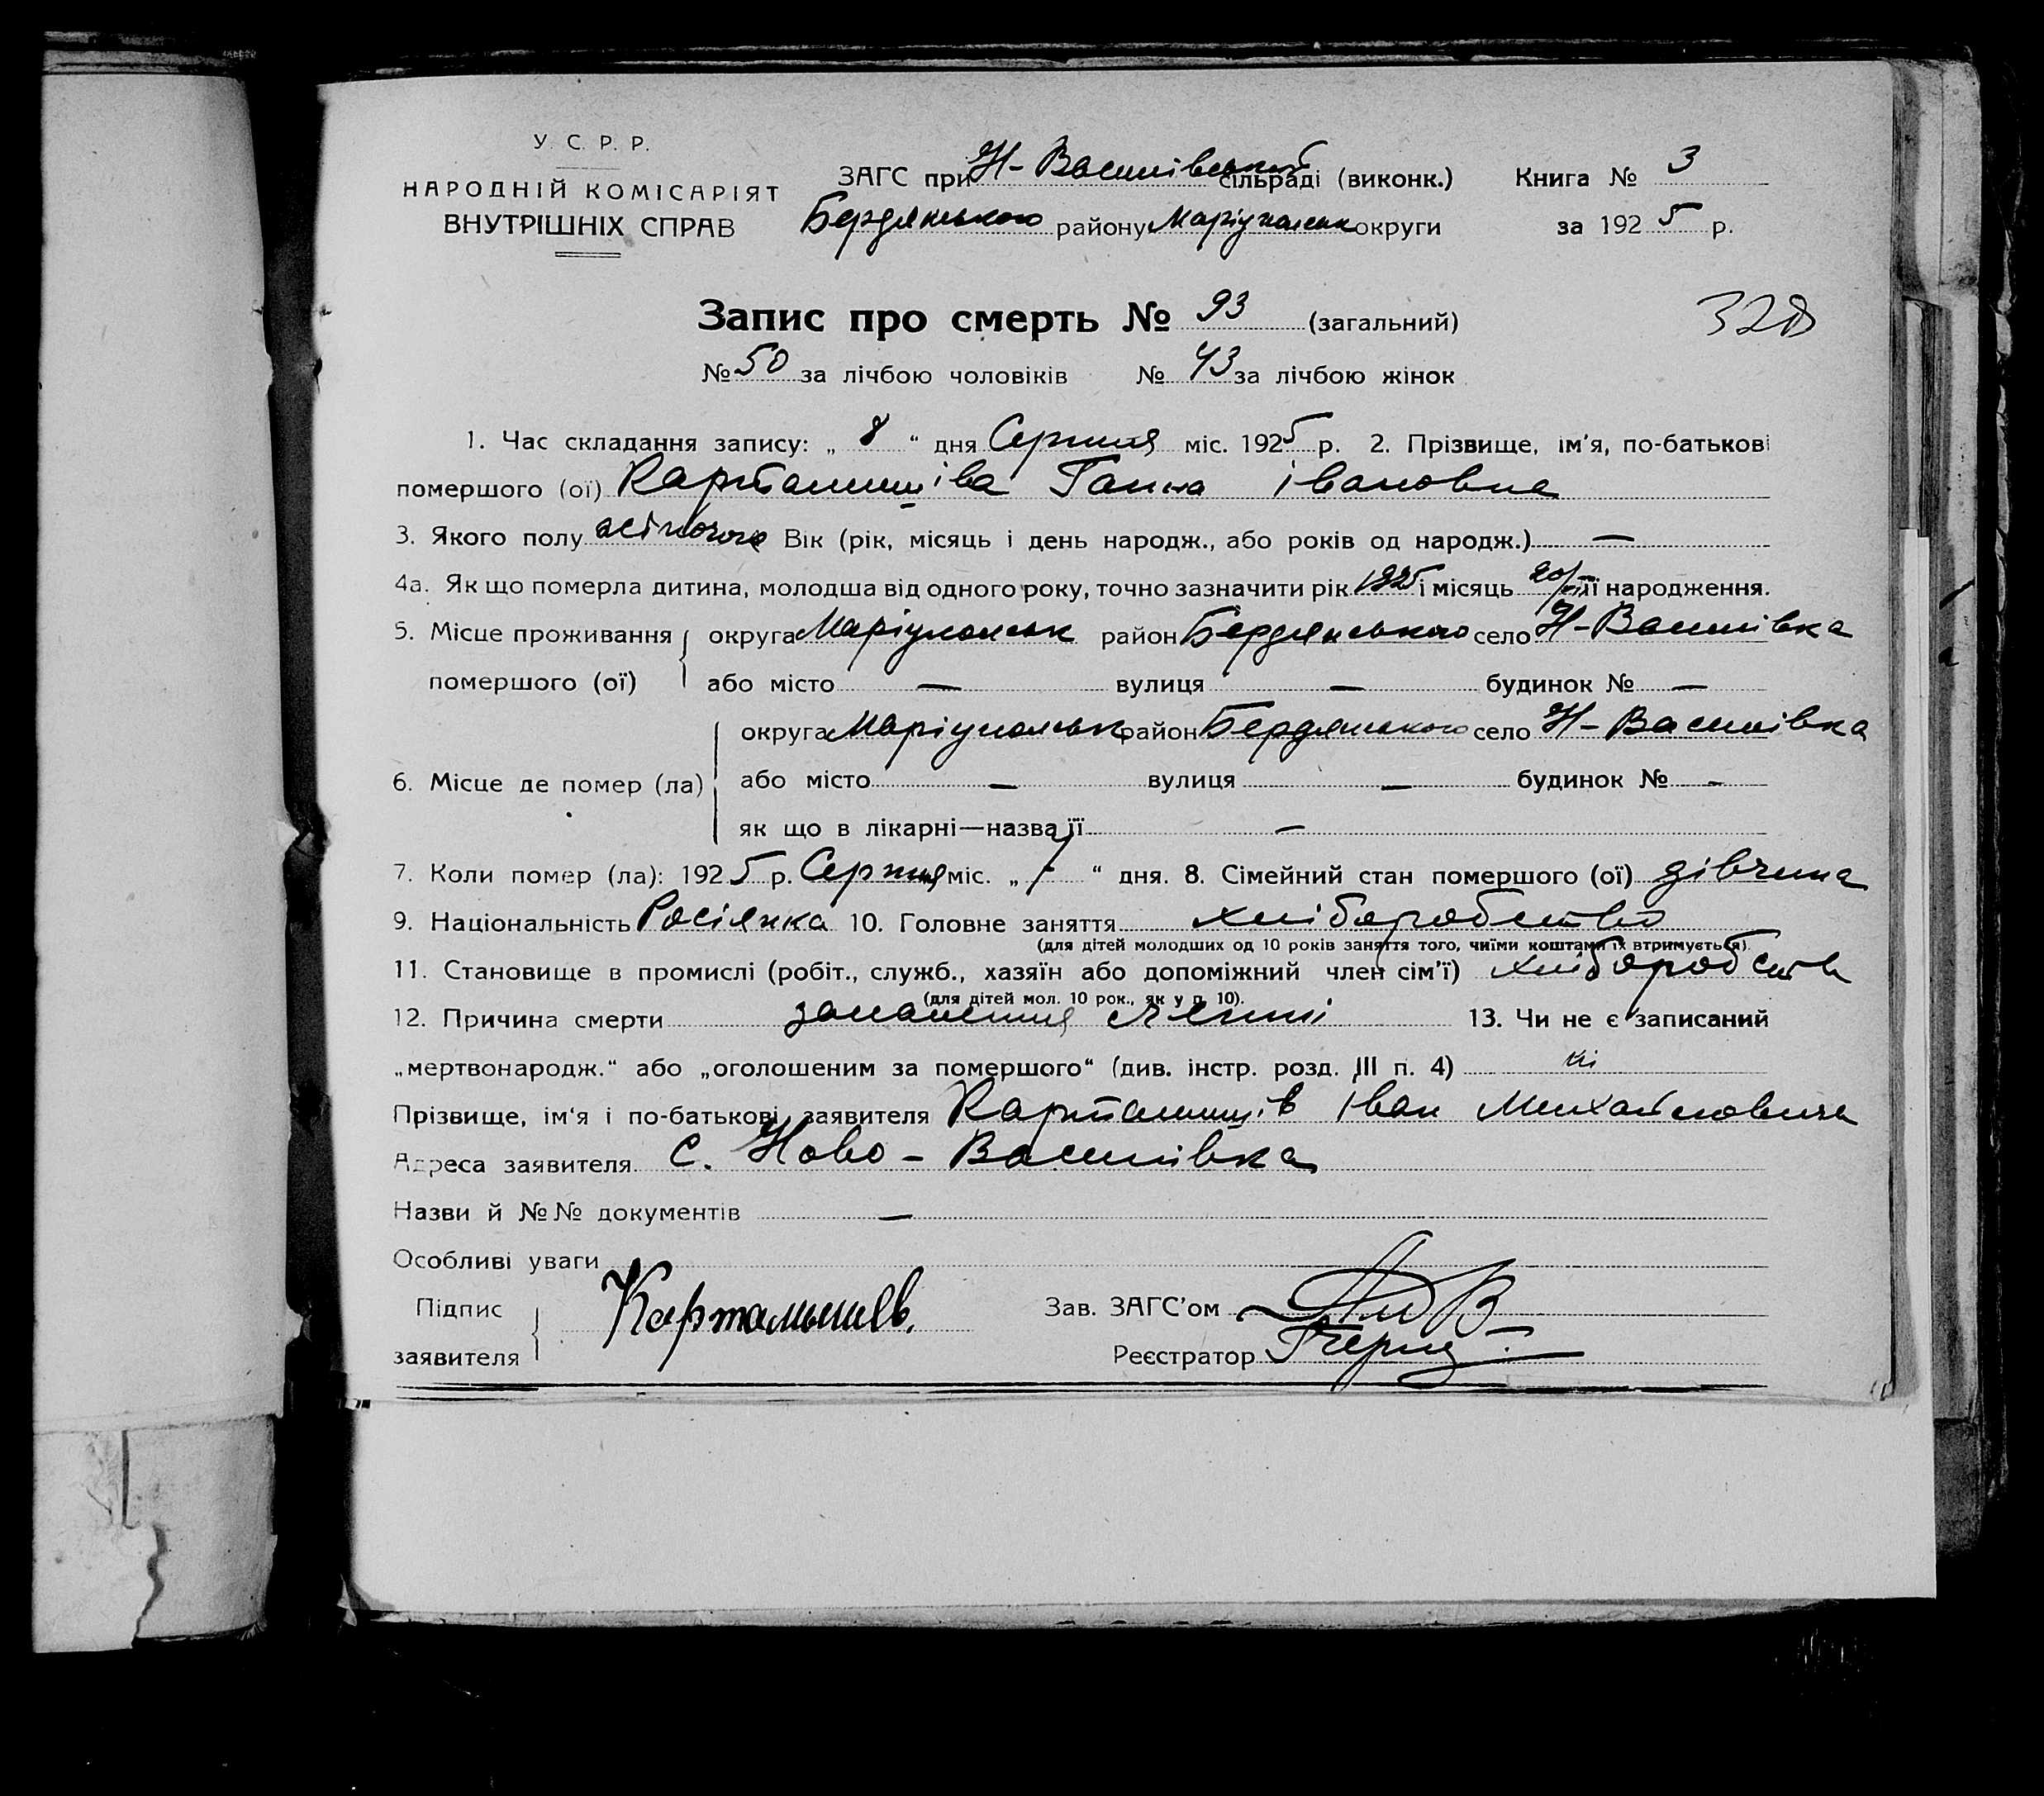 У. С. Р. Р.
НАРОДНІЙ КОМІСАРІЯТ
ВНУТРІШНІХ СПРАВ
ЗАГС при Н-Василівський сільраді (виконк.) Книга № 3
Бердянського району Маріупольськ округи за 1925 р.
328
Запис про смерть № 93 (загальний)
№ 50 за лічбою чоловіків № 43 за лічбою жінок
1. Час складання запису: „ 8 “ дня Серпня міс. 1925 р. 2. Прізвище, ім'я, по-батькові
помершого (ої) Карталишіва Ганна Івановна
3. Якого полу жіночого Вік (рік, місяць і день народж., або років од народж.) —
4а. Як що померла дитина, молодша від одного року, точно зазначити рік 1925 і місяць її народження.
5. Місце проживання округа Маріупольськ район Бердянського село Н-Василівка
помершого (ої) або місто — вулиця — будинок № —
округа Маріупольськ район Бердянського село Н-Василівка
6. Місце де помер (ла) або місто — вулиця — будинок № —
як що в лікарні—назва її —
7. Коли помер (ла): 1925 р. Серпня міс. „ 7 “ дня. 8. Сімейний стан помершого (ої) дівчина
9. Національність Росіянка 10. Головне заняття хліборобство
(для дітей молодших од 10 років заняття того, чиїми коштами їх втримується).
11. Становище в промислі (робіт., служб., хазяїн або допоміжний член сім'ї) хліборобств
(для дітей мол. 10 рок., як у п. 10).
12. Причина смерти запалення 13. Чи не є записаний
„мертвонародж.“ або „оголошеним за помершого“ (див. інстр. розд. III п. 4) ні
Прізвище, ім'я і по-батькові заявителя Карталишів Іван Михайлович
Адреса заявителя с. Ново-Василівка
Назви й №№ документів —
Особливі уваги
Підпис Карталышев. Зав. ЗАГС'ом
заявителя Реєстратор